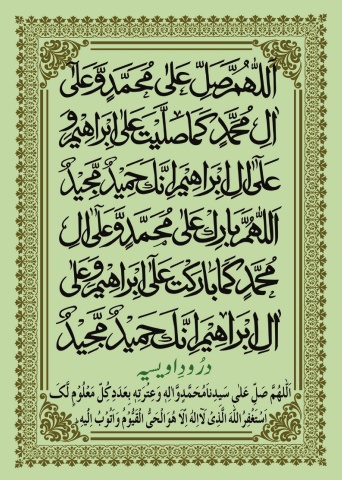 اَللّٰهُمَّ صَلِّ عَلٰى مُحَمَّدٍ وَّعَلٰى
اٰلِ مُحَمَّدٍ كَمَا صَلَّيْتَ عَلٰى اِبْرَاهِيْمَ وَ
عَلٰى اٰلِ اِبْرَاهِيْمَ اِنَّكَ حَمِيْدٌ مَّجِيْدٌ
اَللّٰهُمَّ بَارِكْ عَلٰى مُحَمَّدٍ وَّعَلٰى اٰلِ
مُحَمَّدٍ كَمَا بَارَكْتَ عَلٰى اِبْرَاهِيْمَ وَعَلٰى
اٰلِ اِبْرَاهِيْمَ اِنَّكَ حَمِيْدٌ مَّجِيْدٌ
درُودِ اویسیہ
اَللّٰهُمَّ صَلِّ عَلٰى سَيِّدِنَا مُحَمَّدٍ وَّاٰلِهٖ وَعِتْرَتِهٖ بِعَدَدِ كُلِّ مَعْلُوْمٍ لَّكَ
اَسْتَغْفِرُ اللّٰهَ الَّذِىْ لَآ اِلٰهَ اِلَّا هُوَ الْحَىُّ الْقَيُّوْمُ وَاَتُوْبُ اِلَيْهِ